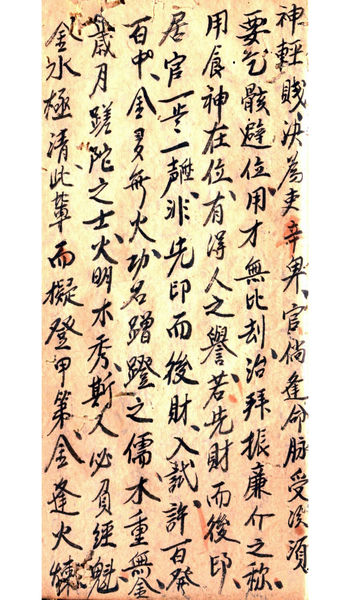 神輕賤决為吏官倘逢命脉受須
要乞骸避位用才無比刦治拜振廉介之称
用食神在位有得人之譽若先財而後印
居官一一非先印而後財入試許百發
百中金多無火功名蹭蹬之儒木重無金
歲月蹉陀之士火明木秀斯人必負經魁
金水極清此輩而擬登甲第金逢火煉